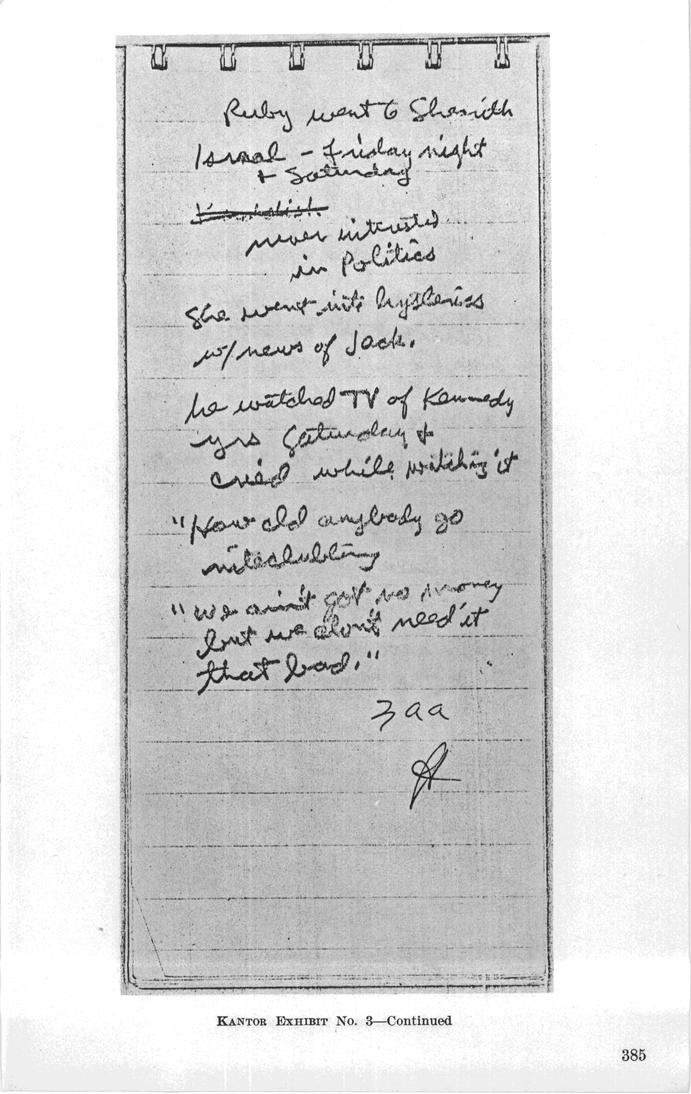 Ruby went to Shearith
Israel - Friday night
+ Saturday
never interested
in Politics
She went into hysterics
w/news of Jack.
he watched TV of Kennedy
yrs Saturday +
cried while watching it
"How cld anybody go
niteclubbing
"we ain't got no money
but we don't need it
that bad."
3aa
KANTOR EXHIBIT No. 3—Continued
385